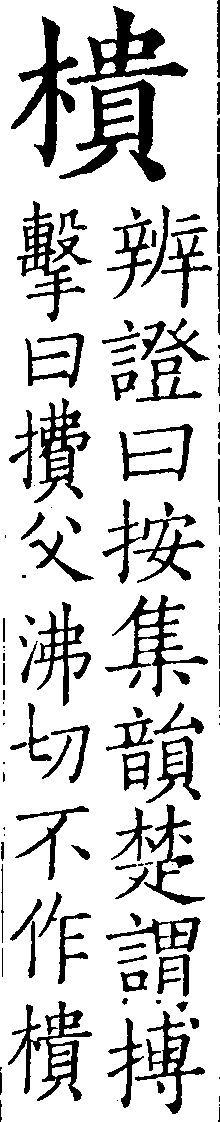 樻
辨證曰按集韻楚謂搏
擊曰㩌父沸切不作樻